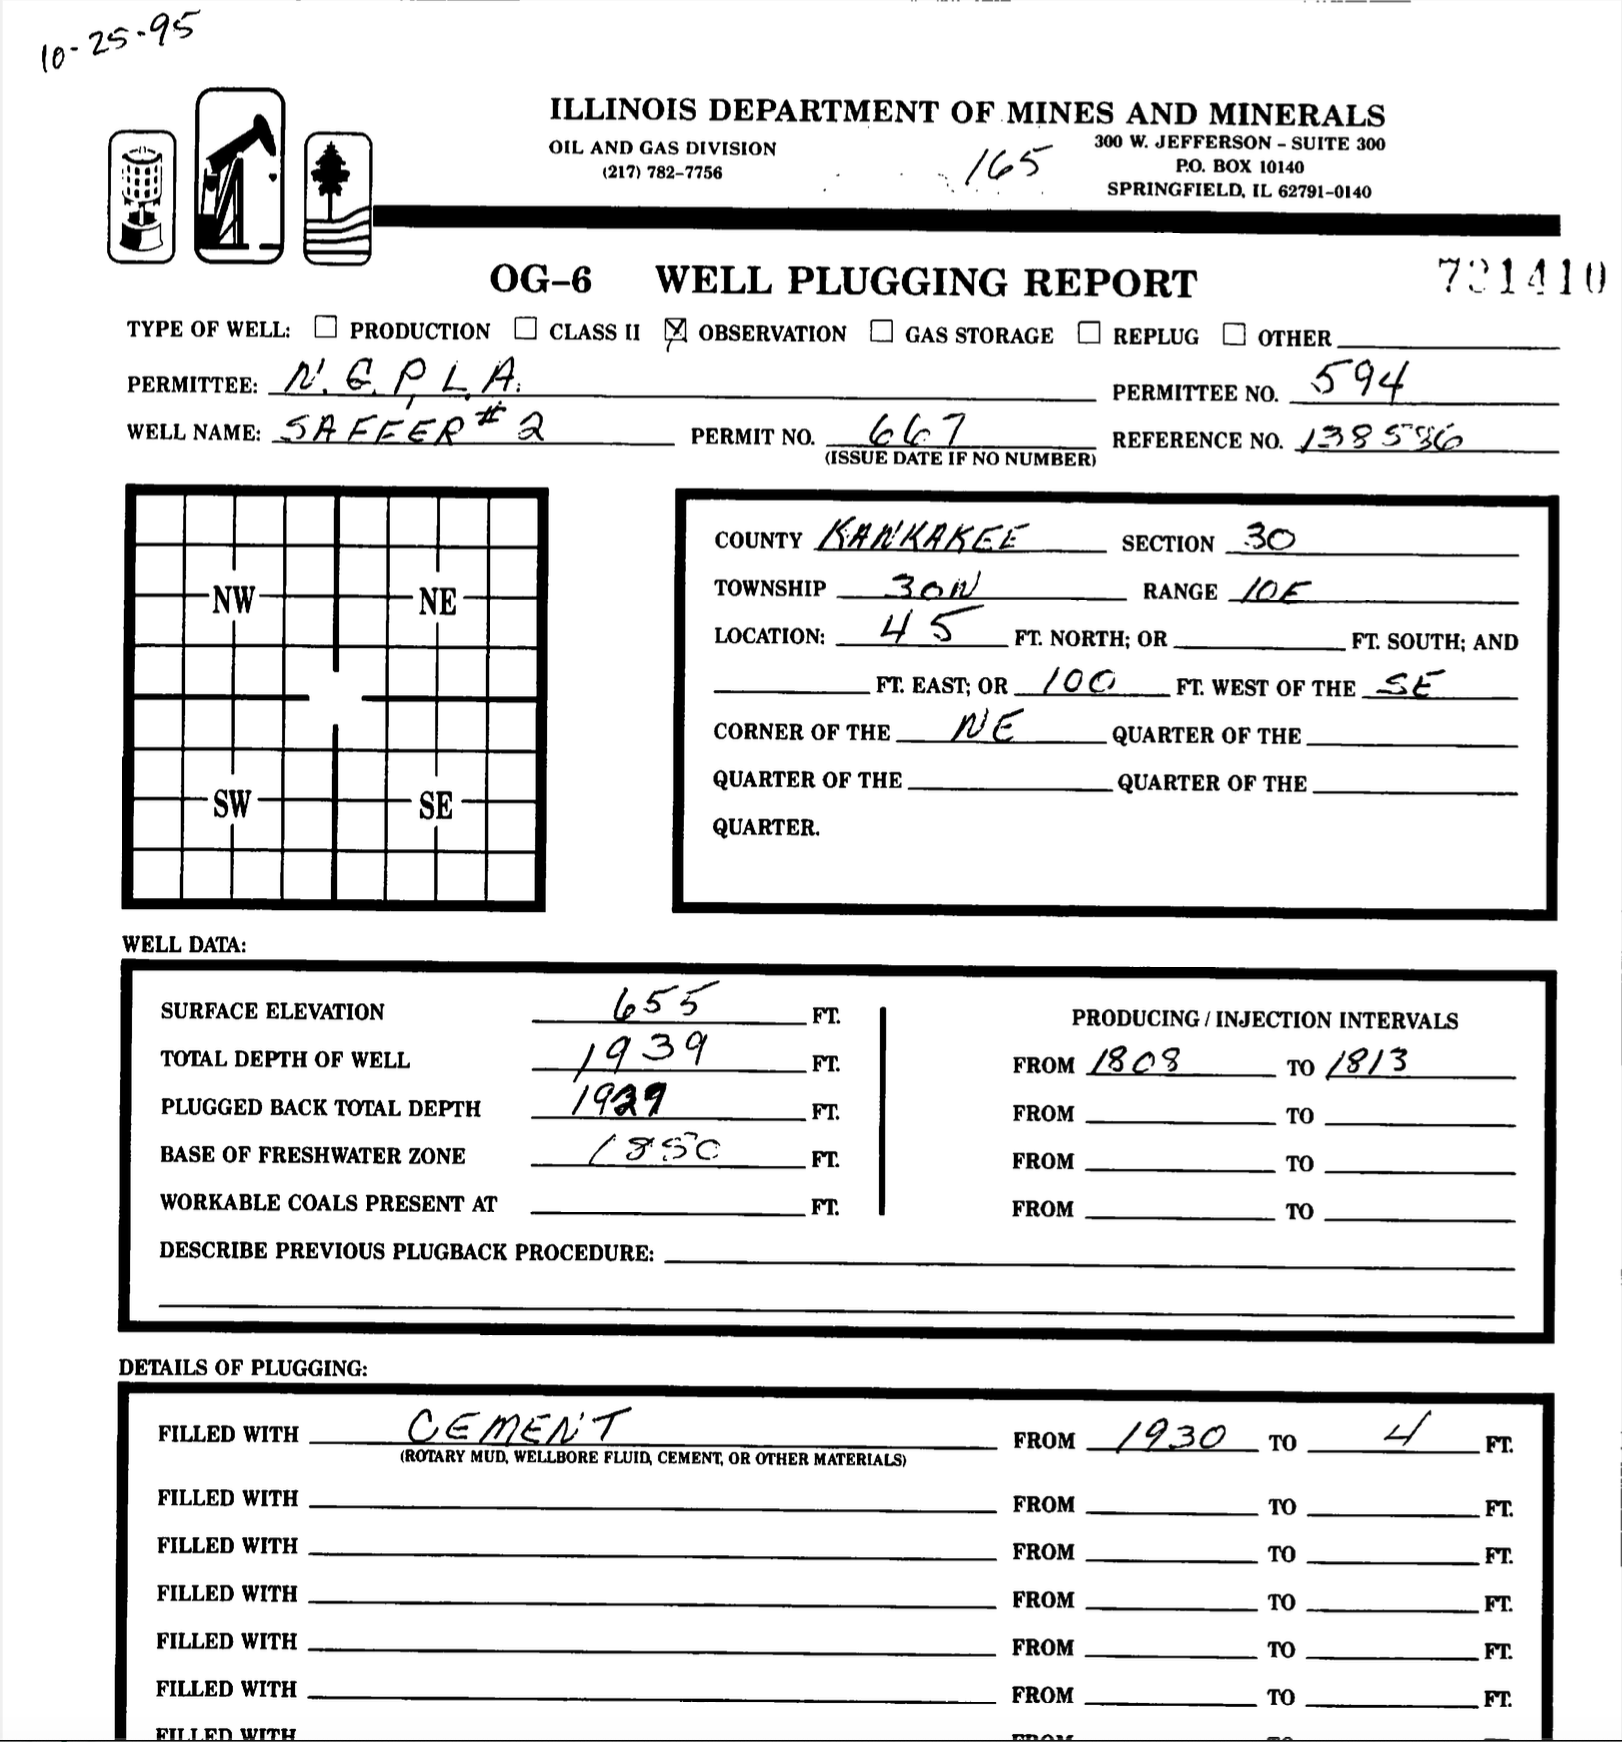 10-25-95
ILLINOIS DEPARTMENT OF MINES AND MINERALS
OIL AND GAS DIVISION 300 W. JEFFERSON – SUITE 300
(217) 782-7756 165 P.O. BOX 10140
SPRINGFIELD, IL 62791-0140
OG-6 WELL PLUGGING REPORT 731410
TYPE OF WELL: PRODUCTION CLASS II OBSERVATION GAS STORAGE REPLUG OTHER
PERMITTEE: N.G.P.L.A. PERMITTEE NO. 594
WELL NAME: SAFFER #2 PERMIT NO. 667 REFERENCE NO. 138586
(ISSUE DATE IF NO NUMBER)
COUNTY KANKAKEE SECTION 30
TOWNSHIP 30N RANGE 10E
LOCATION: 45 FT. NORTH; OR FT. SOUTH; AND
FT. EAST; OR 100 FT. WEST OF THE SE
CORNER OF THE NE QUARTER OF THE
QUARTER OF THE QUARTER OF THE
QUARTER.
NW NE
SW SE
WELL DATA:
SURFACE ELEVATION 655 FT.
TOTAL DEPTH OF WELL 1939 FT.
PLUGGED BACK TOTAL DEPTH 1929 FT.
BASE OF FRESHWATER ZONE 1850 FT.
WORKABLE COALS PRESENT AT FT.
PRODUCING / INJECTION INTERVALS
FROM 1808 TO 1813
FROM TO
FROM TO
FROM TO
DESCRIBE PREVIOUS PLUGBACK PROCEDURE:
DETAILS OF PLUGGING:
FILLED WITH CEMENT FROM 1930 TO 4 FT.
(ROTARY MUD, WELLBORE FLUID, CEMENT, OR OTHER MATERIALS)
FILLED WITH FROM TO FT.
FILLED WITH FROM TO FT.
FILLED WITH FROM TO FT.
FILLED WITH FROM TO FT.
FILLED WITH FROM TO FT.
FILLED WITH FROM TO FT.